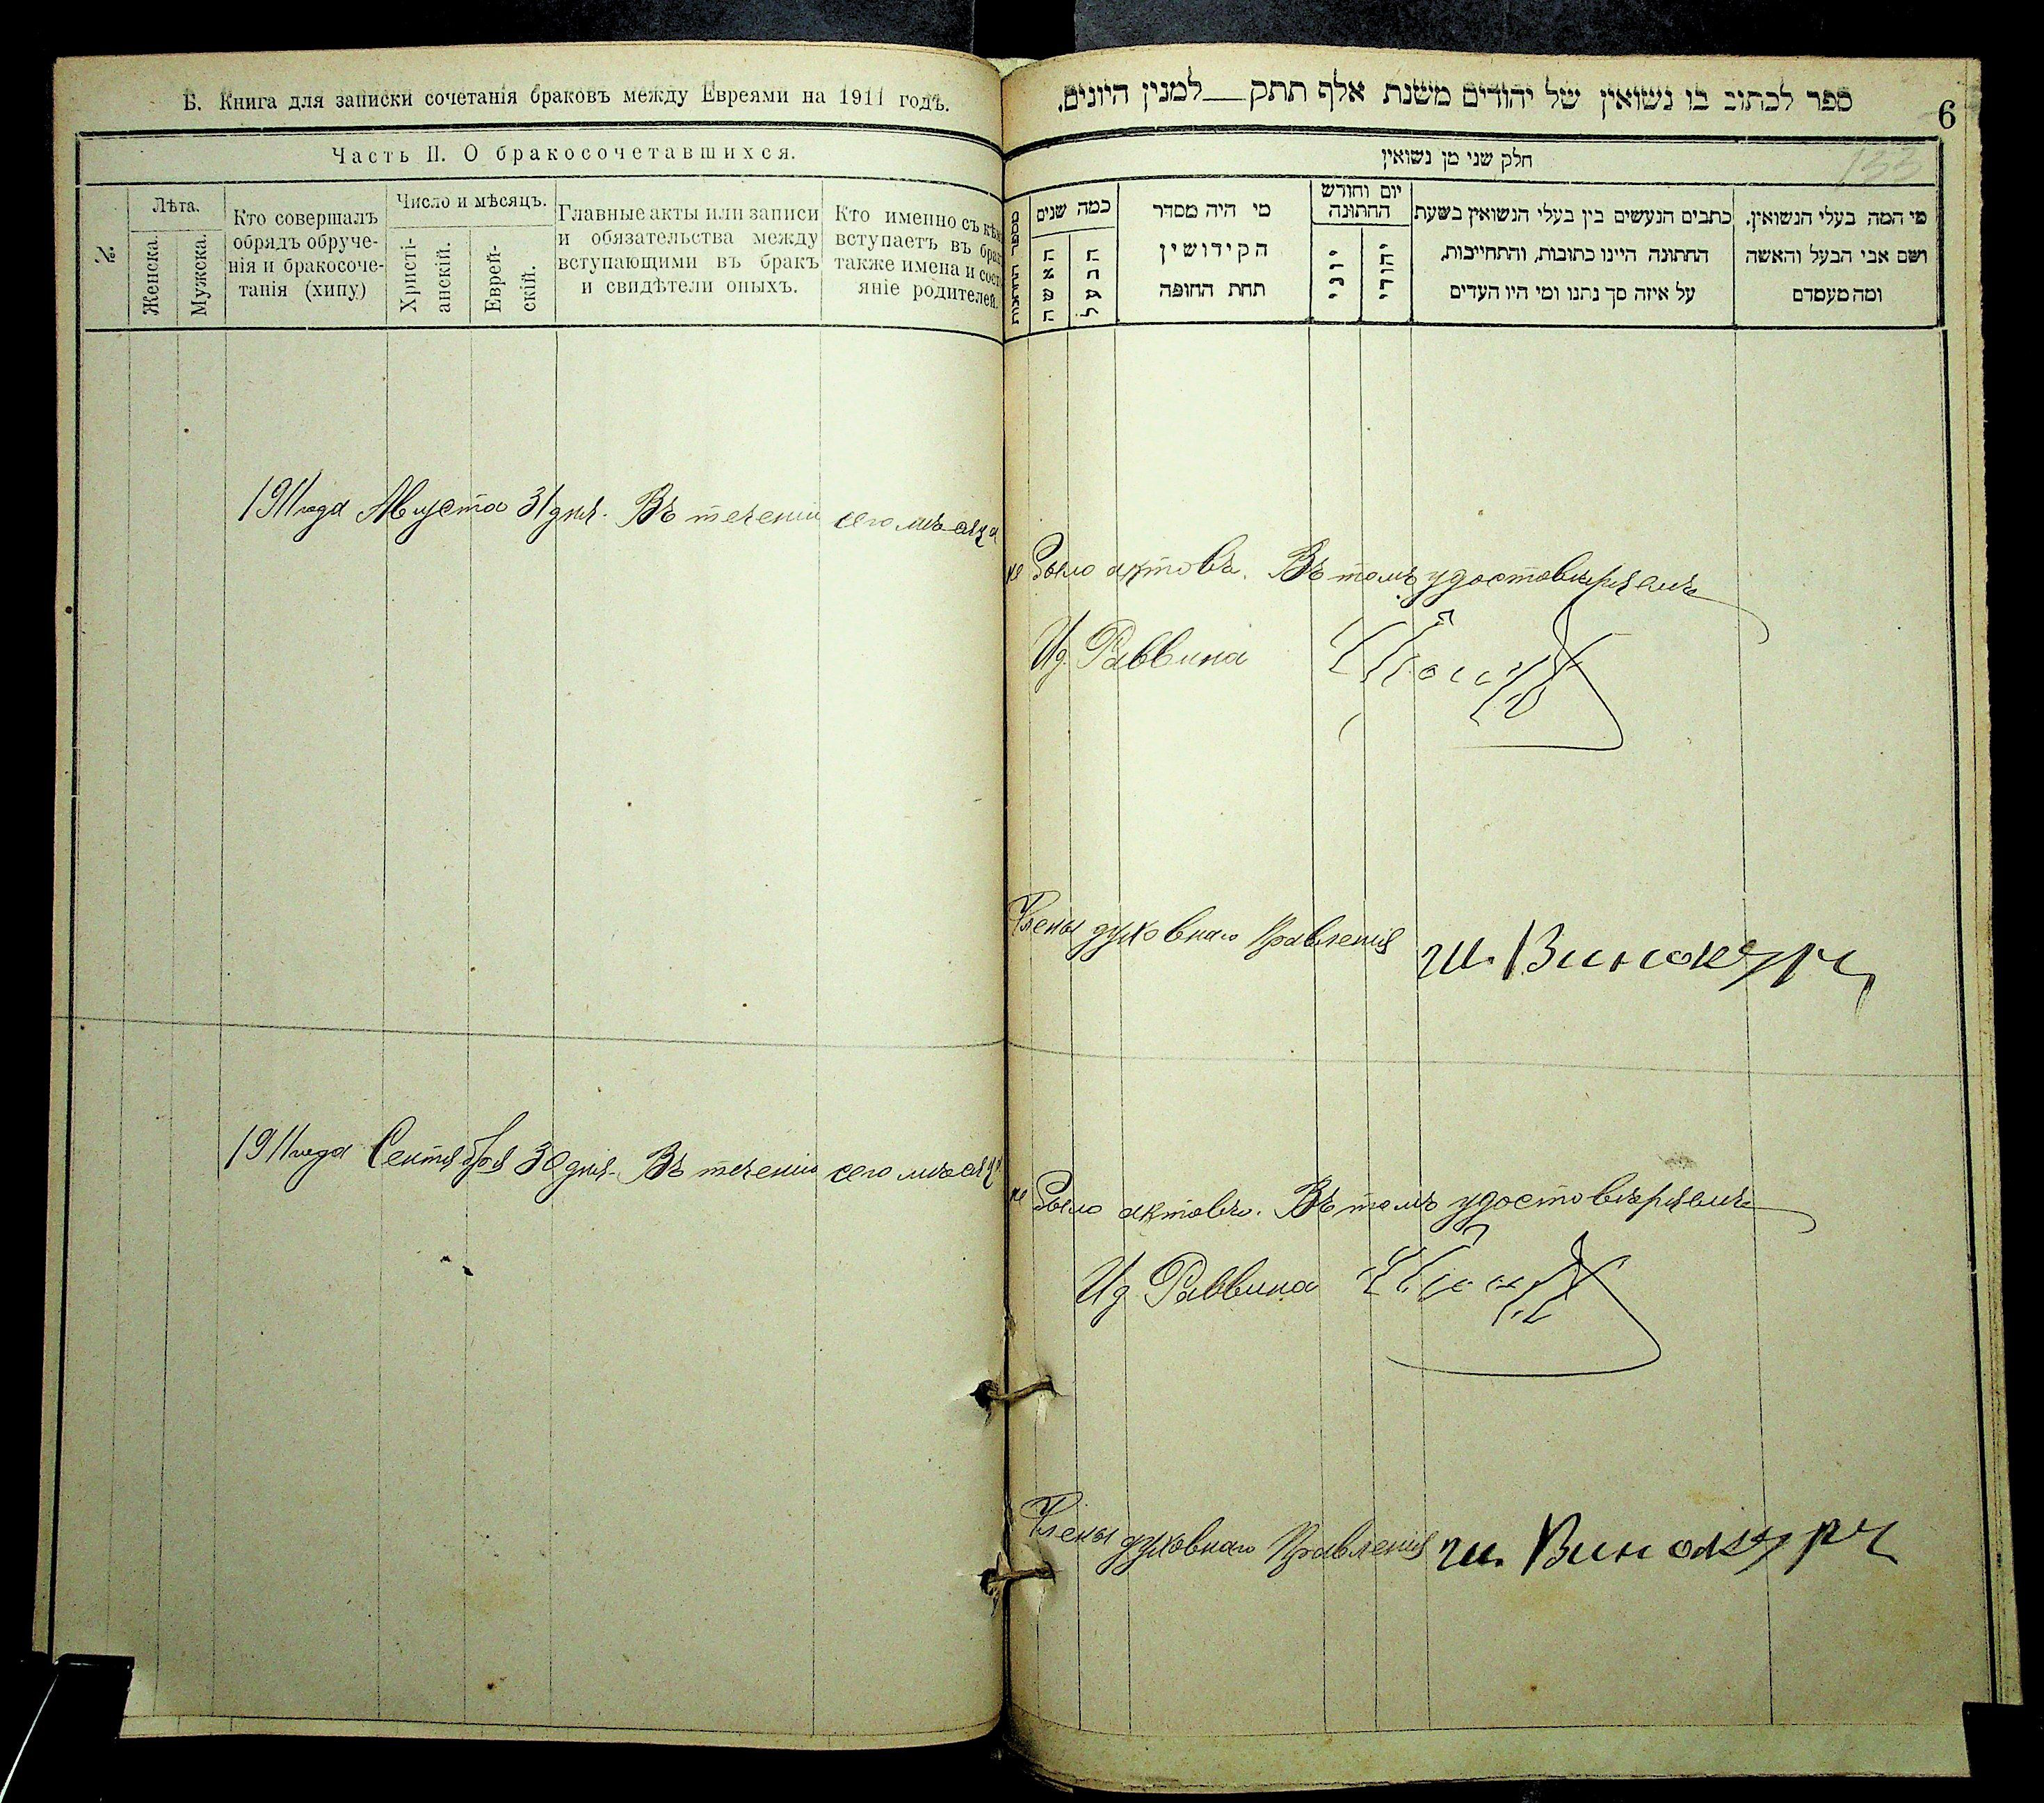 Б. Книга для записки сочетанія браковъ между Евреями на 1911 годъ.
Часть II. О бракосочетавшихся.
№
Лѣта.
Женска.
Мужска.
Кто совершалъ
обрядъ обруче-
нія и бракосоче-
танія (хипу)
Число и мѣсяцъ.
Христі-
анскій.
Еврей-
скій.
Главные акты или записи
и обязательства между
вступающими въ бракъ
и свидѣтели оныхъ.
Кто именно съ кѣмъ
вступаетъ въ бракъ
также имена и сост
яніе родителей.
1911 года Августа 31 дня. Въ теченіи сего мѣсяца
1911 года Сентября 30 дня. Въ теченіи сего мѣсяца
ספר לכתוב בו נשואין של יהודים משנת אלף תתק__למנין היונים.
6
133
חלק שני מן נשואין
מי המה בעלי הנשואין.
ושם אבי הבעל והאשה
ומה מעמדם
כתבים הנעשים בין בעלי הנשואין בשעת
החתונה היינו כתובות, והתחייבות,
על איזה סך נתנו ומי היו העדים
יום וחודש
החתונה
יהודי
יוני
מי היה מסדר
הקידושין
תחת החופה
כמה שנים
הבעל
האשה
מספר החתונות
не было актовъ. Въ томъ удостовѣряемъ
Ид. Раввина
Члены духовнаго Правленія ш. Винокуръ
не было актовъ. Въ томъ удостовѣряемъ
Ид Раввина
Члены духовнаго Правленія ш. Винокуръ